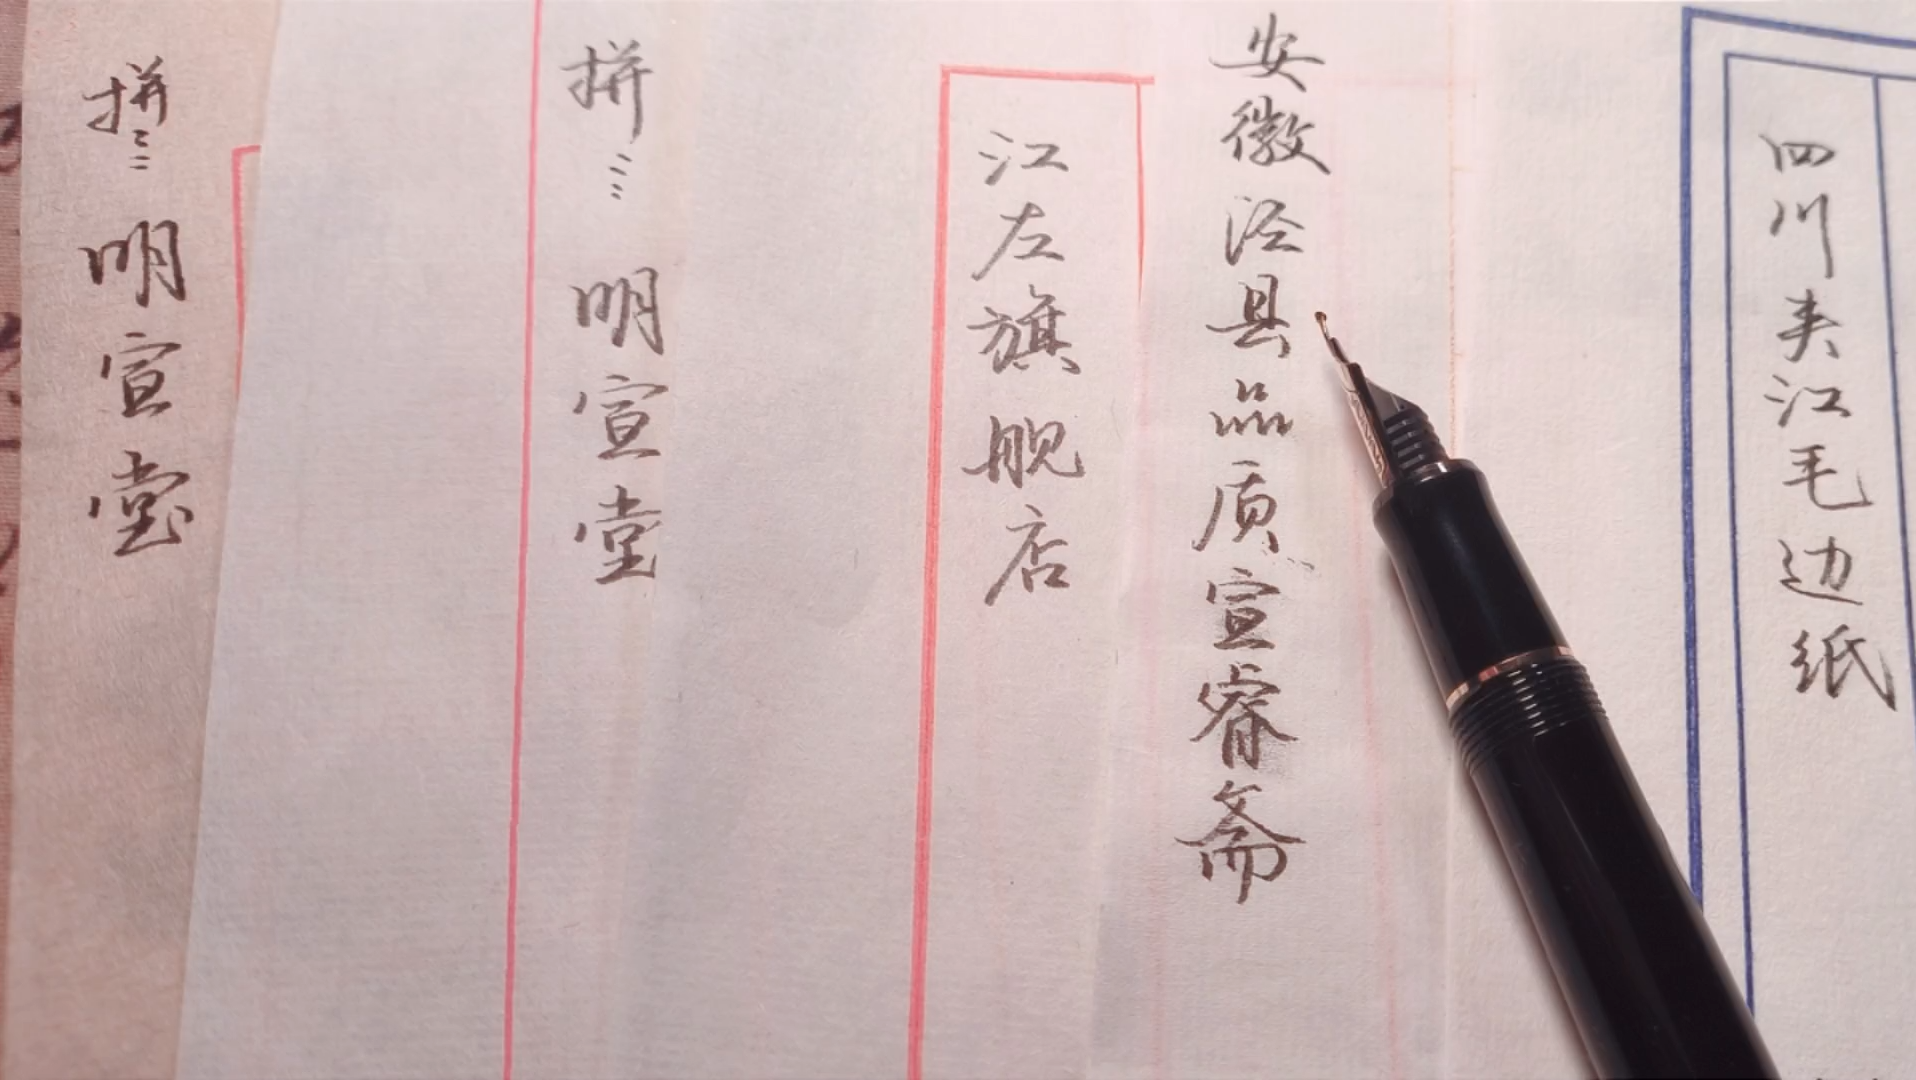 四川夹江毛边纸
安徽泾县品质宣睿斋
江左旗舰店
拼⋮⋮明宣堂
拼⋮⋮明宣堂